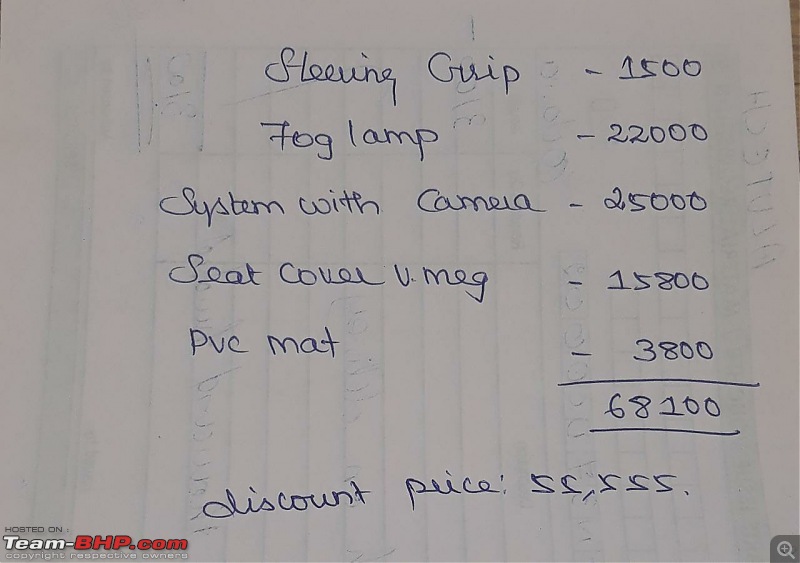 Steering Grip - 1500
Fog lamp - 22000
System with Camera - 25000
Seat Cover V.meg - 15800
PVC mat - 3800
68100
discount price: 55,555.
HOSTED ON :
Team-BHP.com
copyright respective owners